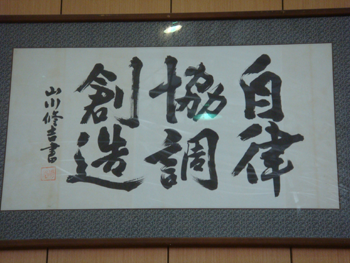 自律
協調
創造
山川修吉書